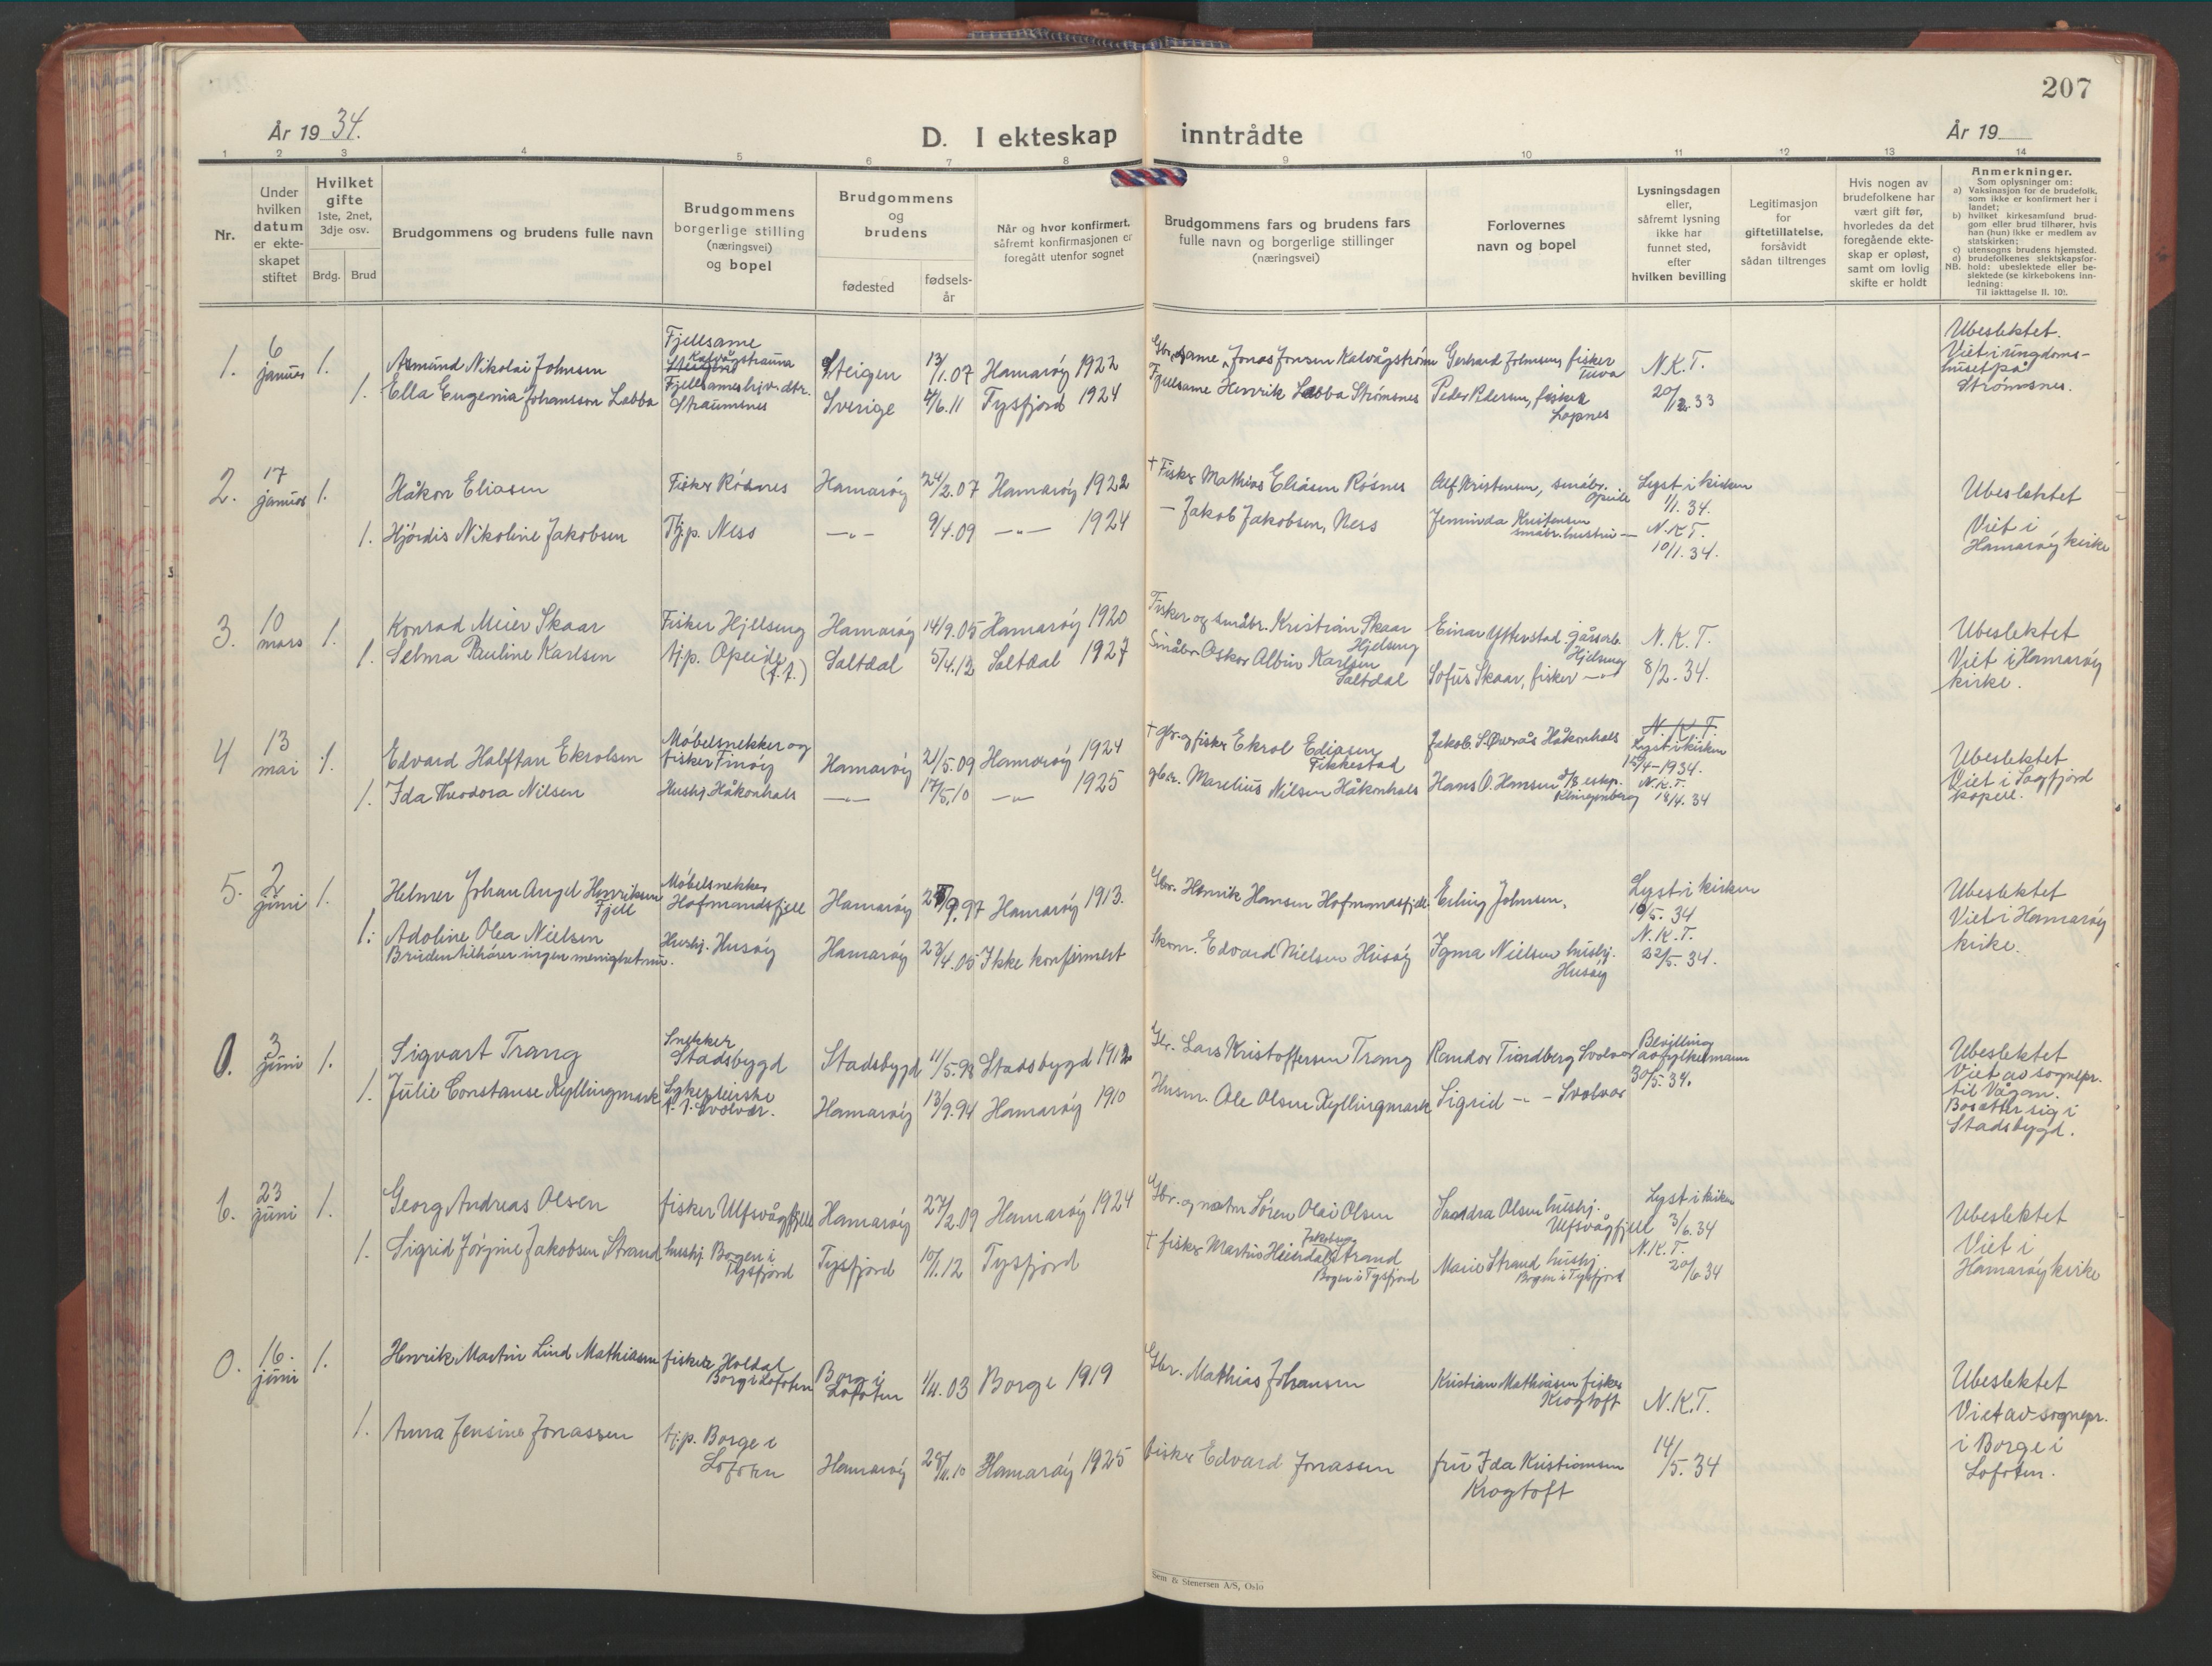 207
År 1934.
D. I ekteskap inntrådte
År 19
1 2 3 4 5 6 7 8 9 10 11 12 13 14
Nr.
Under
hvilken
datum
er ekte-
skapet
stiftet
Hvilket
gifte
1ste, 2net,
3dje osv.
Brdg. Brud
Brudgommens og brudens fulle navn
Brudgommens
borgerlige stilling
(næringsvei)
og bopel
Brudgommens
og
brudens
fødested
fødsels-
år
Når og hvor konfirmert.
såfremt konfirmasjonen er
foregått utenfor sognet
Brudgommens fars og brudens fars
fulle navn og borgerlige stillinger
(næringsvei)
Forlovernes
navn og bopel
Lysningsdagen
eller,
såfremt lysning
ikke har
funnet sted,
efter
hvilken bevilling
Legitimasjon
for
giftetillatelse.
forsåvidt
sådan tiltrenges
Hvis nogen av
brudefolkene har
vært gift før,
hvorledes da det
foregående ekte-
skap er opløst,
samt om lovlig
skifte er holdt
Anmerkninger.
Som oplysninger om:
a) Vaksinasjon for de brudefolk,
som ikke er konfirmert her i
landet;
b) hvilket kirkesamlund brud-
gom eller brud tilhører, hvis
han (hun) ikke er medlem av
statskirken;
c) utensogns brudens hjemsted.
d) brudefolkenes slektskapsfor-
NB. hold: ubeslektede eller be-
slektede (se kirkebokens inn-
ledning:
Til iakttagelse II. 10).
1. 6 januar 1.
Asmund Nikolai Johnsen
Fjellsame
Kalvågstrauna
Steigen 13/1.07 Hamarøy 1922
Jonas Jonsen Kalvågstrømn
Gerhard Johnsen, fisker
Tuva
N.K.T.
20/12.33
Ubeslektet.
Viet i ungdoms-
huset på
Strømsnes.
1. Ella Eugenia Johansson Labba
Fjellsame hjv. dtr.
Straumsnes
Sverige 4/6.11 Tysfjord 1924
Fjellsame Henrik Labba Strømsnes
Peder Pedersen, fisker
Løpnes
2. 17 januar 1.
Håkon Eliasen
Fisker Røsnes
Hamarøy 24/2.07 Hamarøy 1922
† Fisker Mathias Eliasen Røsnes
Alf Kristensen, småbr.
Lyst i kirken
1/1.34.
Ubeslektet
Viet i
Hamarøy kirke
1. Hjördis Nikoline Jakobsen
Tj.p. Ness
—"— 9/4.09 —"— 1924
— Jakob Jakobsen, Ness
Kristensen
småbr. hustru —
N.K.T.
10/1.34.
3. 10 mars 1.
Konrad Meier Skaar
Fisker Hjellseng
Hamarøy 14/9.05 Hamarøy 1920
Fisker og småbr. Kristian Skaar
Hjelseng
Einar Ytterstad, gårsarb.
Hjelseng
N.K.T.
8/2.34.
Ubeslektet
Viet i Hamarøy
kirke.
1. Selma Pauline Karlsen
tj.p. Opeide
(f.t.)
Saltdal 5/4.12 Saltdal 1927
Småbr. Oskar Albin Karlsen
Saltdal
Sofus Skaar, fisker —"—
4 13 mai 1.
Edvard Halftan Ekrolsen
Møbelsnekker og
fisker Finøy
Hamarøy 21/5.09 Hamarøy 1924
† gbr. og fisker Ekrol Ediasen
Fikkestad
Jakob S. Øverås Håkonhals
N.K.T.
Lyst i kirken
15/4-1934.
Ubeslektet
Viet i Sagfjord
kapell.
1. Ida Theodora Nilsen
Hushj. Håkonhals
—"— 17/5.10 —"— 1925
gbr. Marelius Nilsen Håkonhals
Hans O. Hansen
N.K.T.
18/4.34
5. 2 juni 1.
Helmer Johan Angel Henriksen
Fjell
Møbelsnekker
Hofmandsfjell
Hamarøy /9.97 Hamarøy 1913.
Gbr. Henrik Hansen Hofmansfjell
Erling Johnsen,
Lyst i kirken
10/5.34
Ubeslektet
Viet i Hamarøy
kirke.
1. Adoline Olea Nielsen
Bruden tilhører ingen menighet
Hushj. Husøy
Hamarøy 23/4.05 Ikke konfirmert
Skom. Edvard Nielsen Husøy
Nielsen hushj.
Husøy
N.K.T.
22/5.34.
0. 3 juni 1.
Sigvart Trang
Snekker
Stadsbygd
Stadsbygd 11/5.98 Stadsbygd 1912
Gbr. Lars Kristoffersen Trang
Randor Tindberg Svolvær
Bevilling
av fylkesmann
30/5.34.
Ubeslektet
Viet av sognepr.
til Vågan.
Bosetter sig i
Stadsbygd.
1. Julie Constanse Kyllingmark
Sykepleierske
f.t. Svolvær.
Hamarøy 13/9.94 Hamarøy 1910
Husm. Ole Olsen Kyllingmark
Sigrid —"— Svolvær
6. 23 juni 1.
Georg Andreas Olsen
fisker Ulfsvågfjell
Hamarøy 27/2.09 Hamarøy 1924
Søren Olai Olsen
Sandra Olsen hushj.
Ulfsvågfjell
Lyst i kirken
3/6.34
Ubeslektet
Viet i
Hamarøy kirke
1. Sigrid Jørgine Jakobsen Strand
hushj. Bogen i
Tysfjord
Tysfjord 10/1.12 Tysfjord
† fisker Martus Heierdal Jakobsen Strand
Bogen i Tysfjord
Marie Strand hushj
Bogen i Tysfjord
N.K.T.
20/6 34
0. 16. juni 1.
Henrik Martin Lind Mathiasen
fisker Holdal
Borg i Lofoten
Borg i
Lofoten
1/11.03 Borge 1919
Gbr. Mathias Johansen
Kristian Mathiasen fisker
Krogtoft
N.K.T.
14/5.34
Ubeslektet
Viet av sognepr.
i Borge i
Lofoten.
1. Anna Jensine Jonassen
tj.p. Borge i
Lofoten
Hamarøy Hamarøy 1925
fisker Edvard Jonassen
fru Ida Kristiansen
Krogtoft
Sem & Stenersen A/S, Oslo